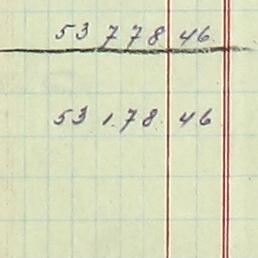 53 778 46
53 178 46